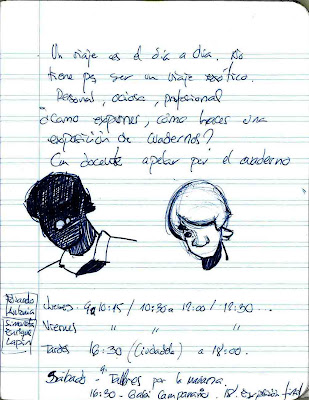 Un viaje es el día a día. No
tiene pq ser un viaje exótico.
Personal, ociosa, profesional
¿Como expones, cómo haces una
exposición de cuadernos?
Con docente apelar por el cuaderno
Eduardo
Antonia
Simonetta
Enrique
Lapin
Jueves 9a 10:15 / 10:30 a 12:00 / 12:30 ...
Viernes " " "
Tardes 16:30 (Ciudadela) a 18:00.
Sábado - Talleres por la mañana.
16:30 - Campanario. 18' Exposición final